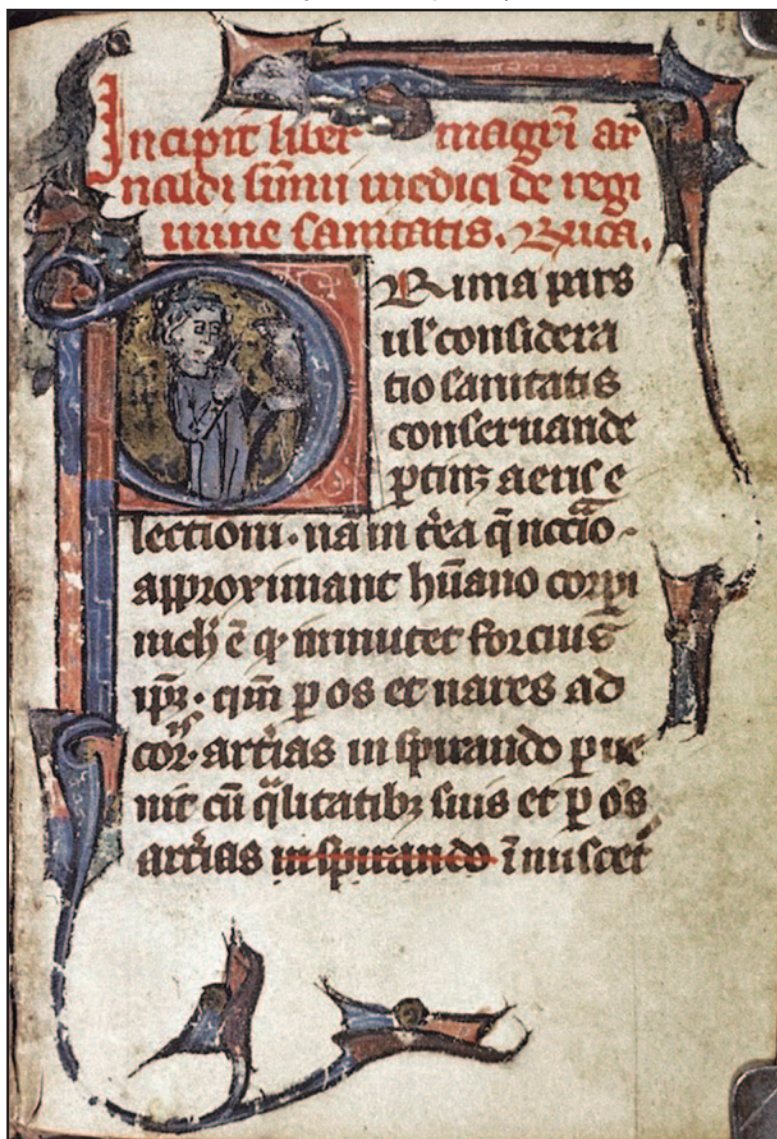 Incipit liber magr̄i ar
naldi sūmi medici de regi
mine sanitatis. Rica.
PRima pars
ul' considera
tio sanitatis
conseruande
ꝑtinꝫ aeris e
lectioni. nā in t̄ea q̄
approximant hūano corꝑi
nich' ē ꝙ minutet forcius
ip̄ꝫ. ꝑ os et nares ad
cor. art̄ias inspirando ꝑue
nit cū q̄litatibꝫ suis et ꝑ os
art̄ias inspirando īmiscet